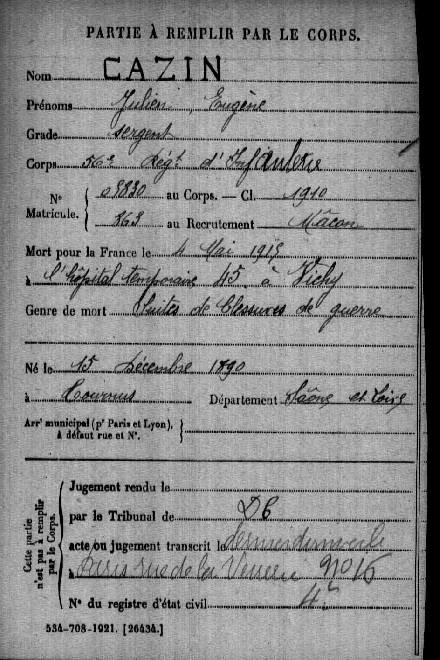 PARTIE À REMPLIR PAR LE CORPS.
Nom CAZIN
Prénoms Julien, Eugène
Grade sergent
Corps 56e Régt d'Infanterie
N° Matricule. 03830 au Corps. — Cl. 1910
363 au Recrutement Mâcon
Mort pour la France le 4 Mai 1915
à l'hôpital temporaire 45 à Vichy
Genre de mort Suites de blessures de guerre
Né le 15 Décembre 1890
à Tournus Département Saône et Loire
Arrt municipal (pr Paris et Lyon), à défaut rue et N°.
Cette partie n'est pas à remplir par le Corps.
Jugement rendu le
par le Tribunal de DC
acte ou jugement transcrit le
à Paris rue de la N° 16
N° du registre d'état civil
534-708-1921. [26434.]